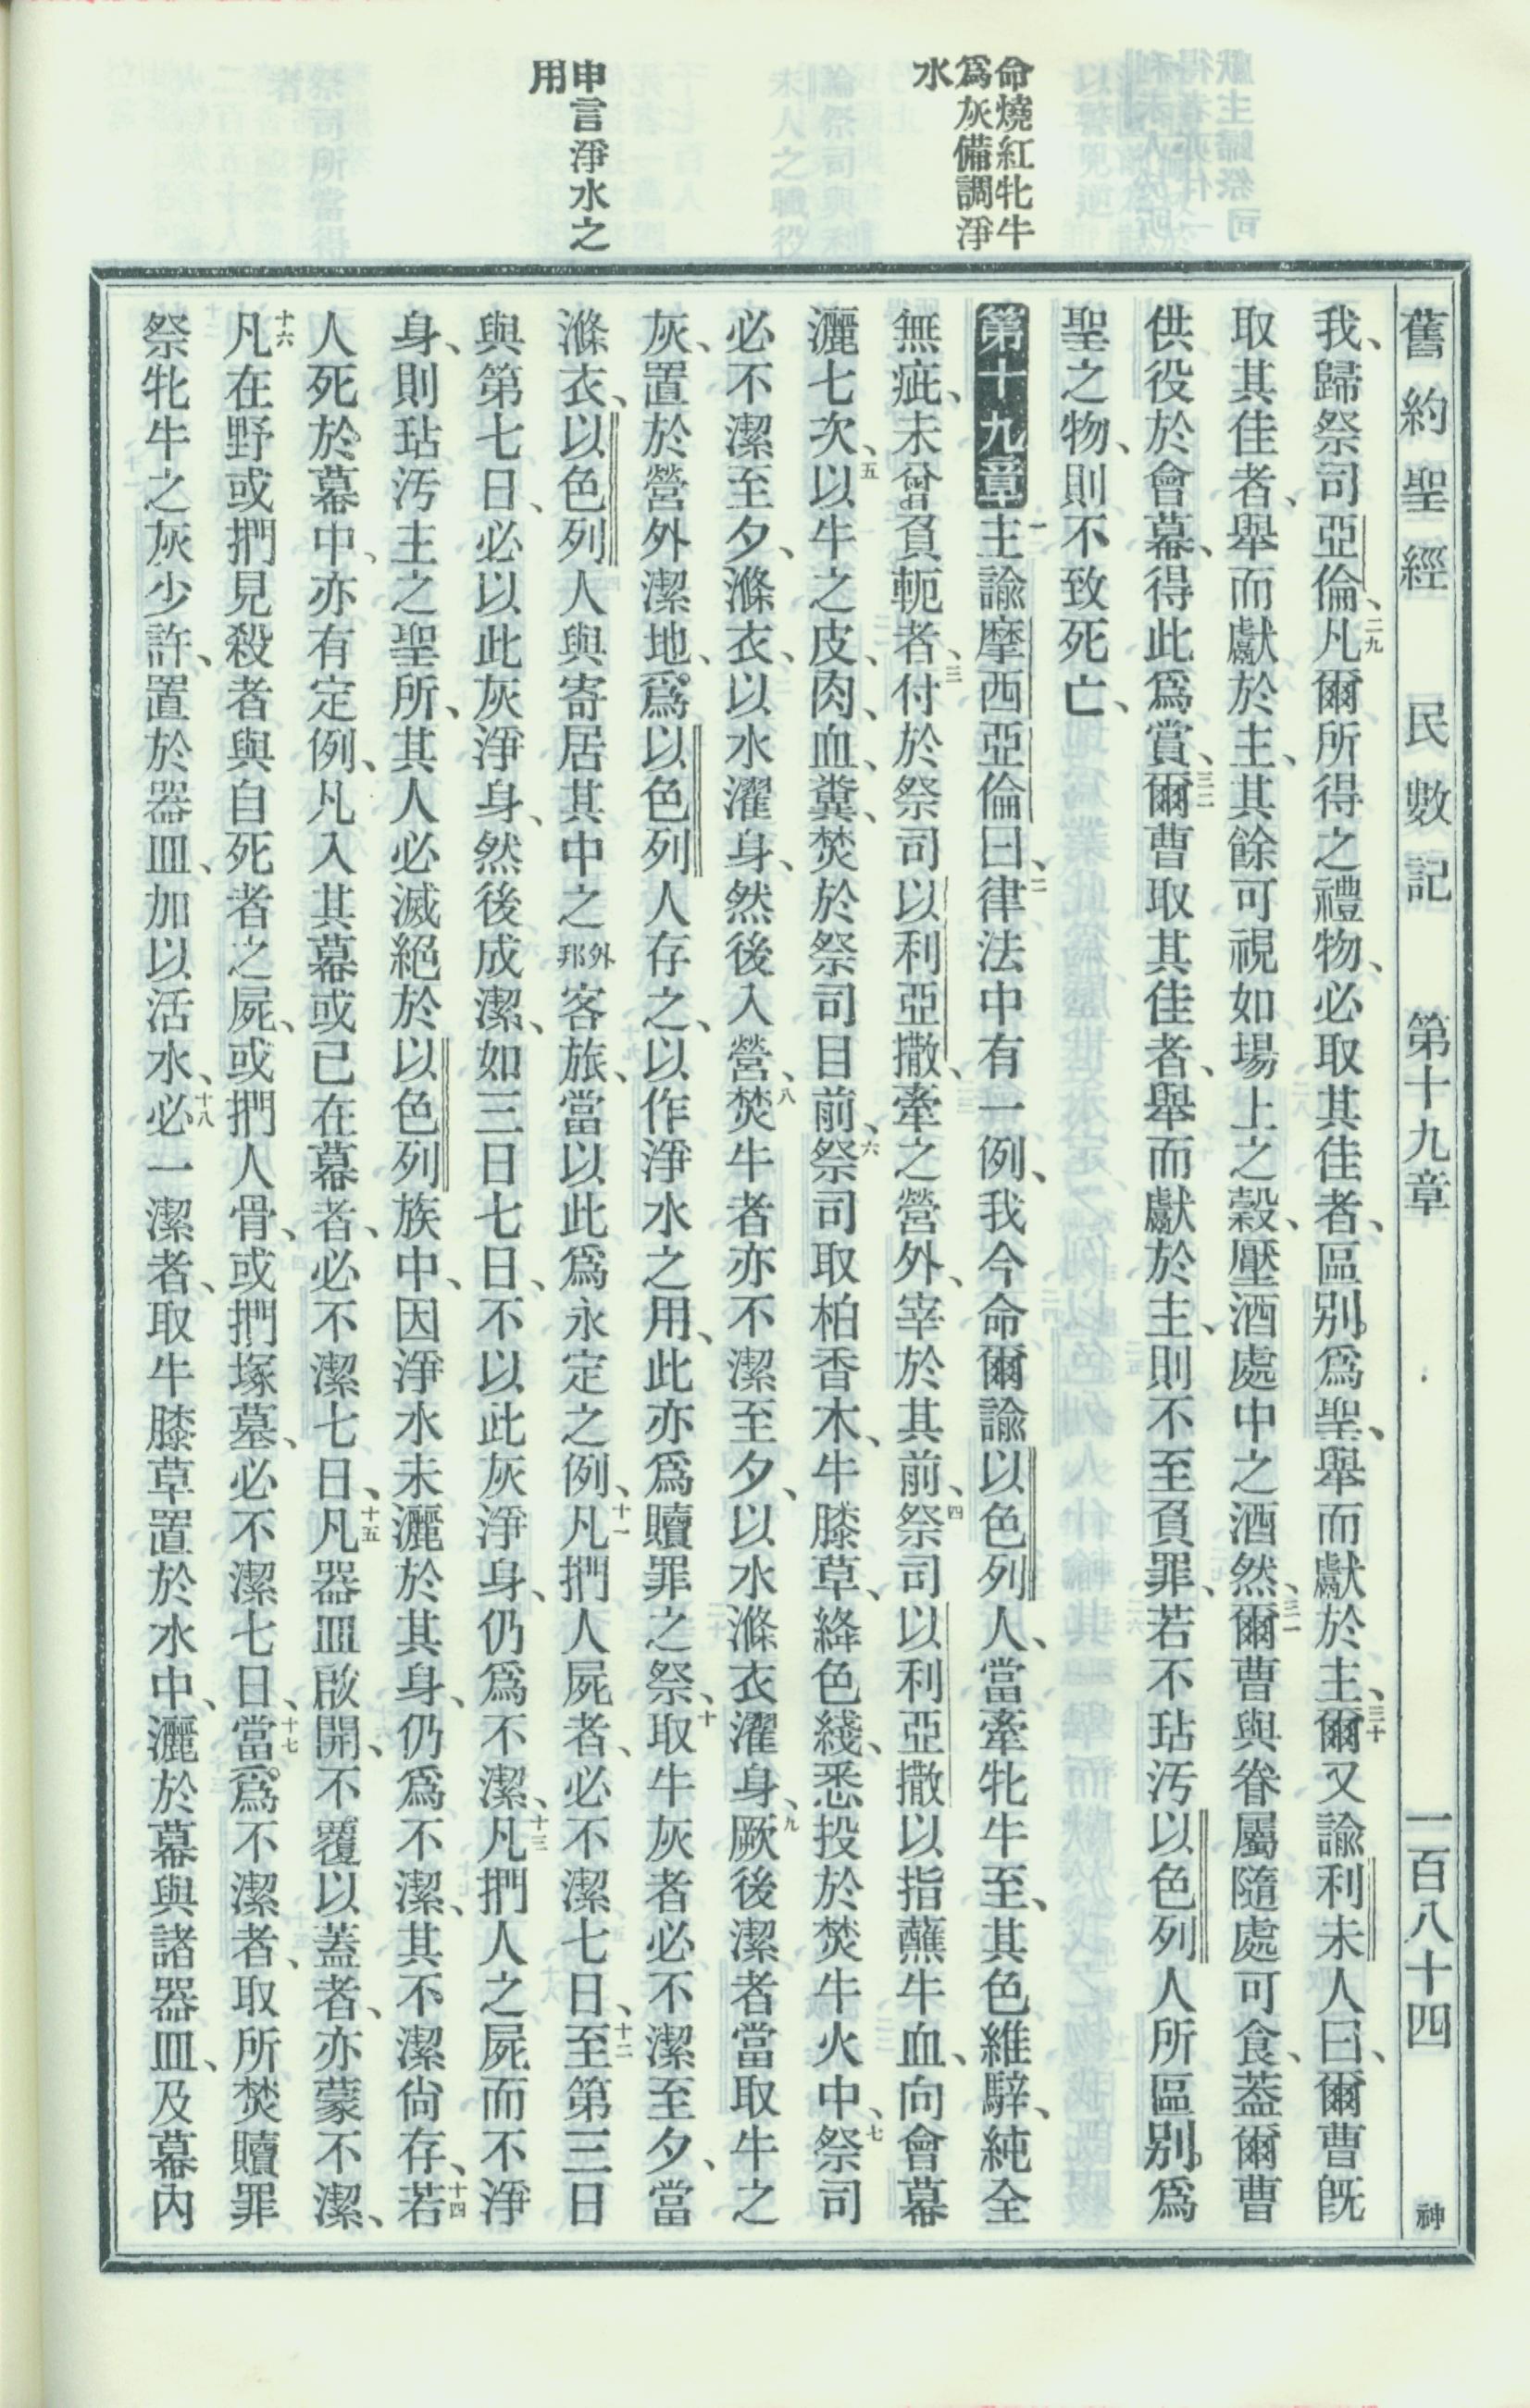 舊約聖經 民數記 第十九章 一百八十四 神
命燒紅牝牛
爲灰備調淨
水
申言淨水之
用
我、歸祭司亞倫、二九凡爾所得之禮物、必取其佳者、區別爲聖、舉而獻於主、三十爾又諭利未人曰、爾曹旣
取其佳者、舉而獻於主、其餘可視如場上之穀、壓酒處中之酒、三一然爾曹與眷屬隨處可食、蓋爾曹
供役於會幕、得此爲賞、三二爾曹取其佳者、舉而獻於主、則不至負罪、若不玷汚以色列人所區別爲
聖之物、則不致死亡、
第十九章 一主諭摩西亞倫曰、二律法中有一例、我今命爾諭以色列人、當牽牝牛至、其色維騂、純全
無疵、未曾負軛者、三付於祭司以利亞撒、牽之營外、宰於其前、四祭司以利亞撒以指蘸牛血、向會幕
灑七次、五以牛之皮、肉、血、糞、焚於祭司目前、六祭司取柏香木、牛膝草、絳色綫、悉投於焚牛火中、七祭司
必不潔至夕、滌衣、以水濯身、然後入營、八焚牛者亦不潔至夕、以水滌衣濯身、九厥後潔者當取牛之
灰、置於營外潔地、爲以色列人存之、以作淨水之用、此亦爲贖罪之祭、十取牛灰者必不潔至夕、當
滌衣、以色列人與寄居其中之外邦客旅、當以此爲永定之例、十一凡捫人屍者、必不潔七日、十二至第三日
與第七日、必以此灰淨身、然後成潔、如三日七日、不以此灰淨身、仍爲不潔、十三凡捫人之屍而不淨
身、則玷汚主之聖所、其人必滅絕於以色列族中、因淨水未灑於其身、仍爲不潔、其不潔尙存、十四若
人死於幕中、亦有定例、凡入其幕或已在幕者、必不潔七日、十五凡器皿啟開、不覆以蓋者、亦蒙不潔、
十六凡在野或捫見殺者與自死者之屍、或捫人骨、或捫塚墓、必不潔七日、十七當爲不潔者、取所焚贖罪
祭牝牛之灰少許、置於器皿、加以活水、十八必一潔者、取牛膝草置於水中、灑於幕與諸器皿、及幕內